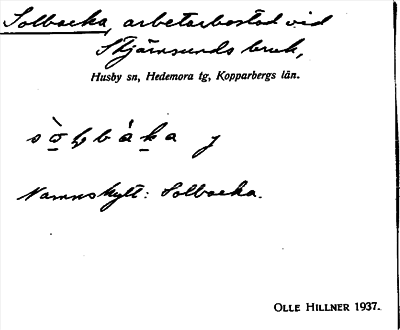 Solbacka, arbetarbostad vid
Stjärnsunds bruk,
Husby sn, Hedemora tg, Kopparbergs län.
Namnskylt: Solbacka.
OLLE HILLNER 1937.